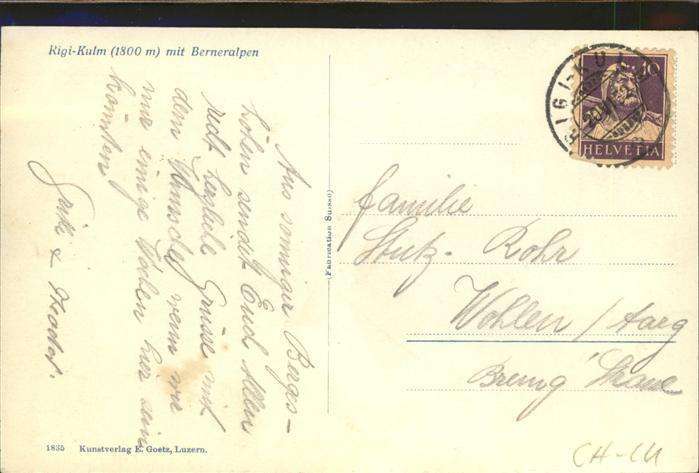 Rigi-Kulm (1800 m) mit Berneralpen
Aus sonniger Bergs-
höhen sendet Euch Allen
recht herzliche Grüsse mit
dem Wunsche wenn wir
nur einige Wochen hier sein
könnten
RIGI-KULM
10
HELVETIA
(Fabrication Suisse)
Familie
Stutz-Rohr
Wohlen / Aarg
1835 Kunstverlag E. Goetz, Luzern.
CH-LU